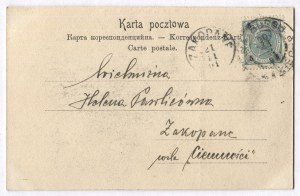 Karta pocztowa
Карта кореспонденцийна. — Korrespondenz-Karte
Carte postale.
ZAKOPANE
Wielmożna
Helena Pawlicówna
Zakopane
willa